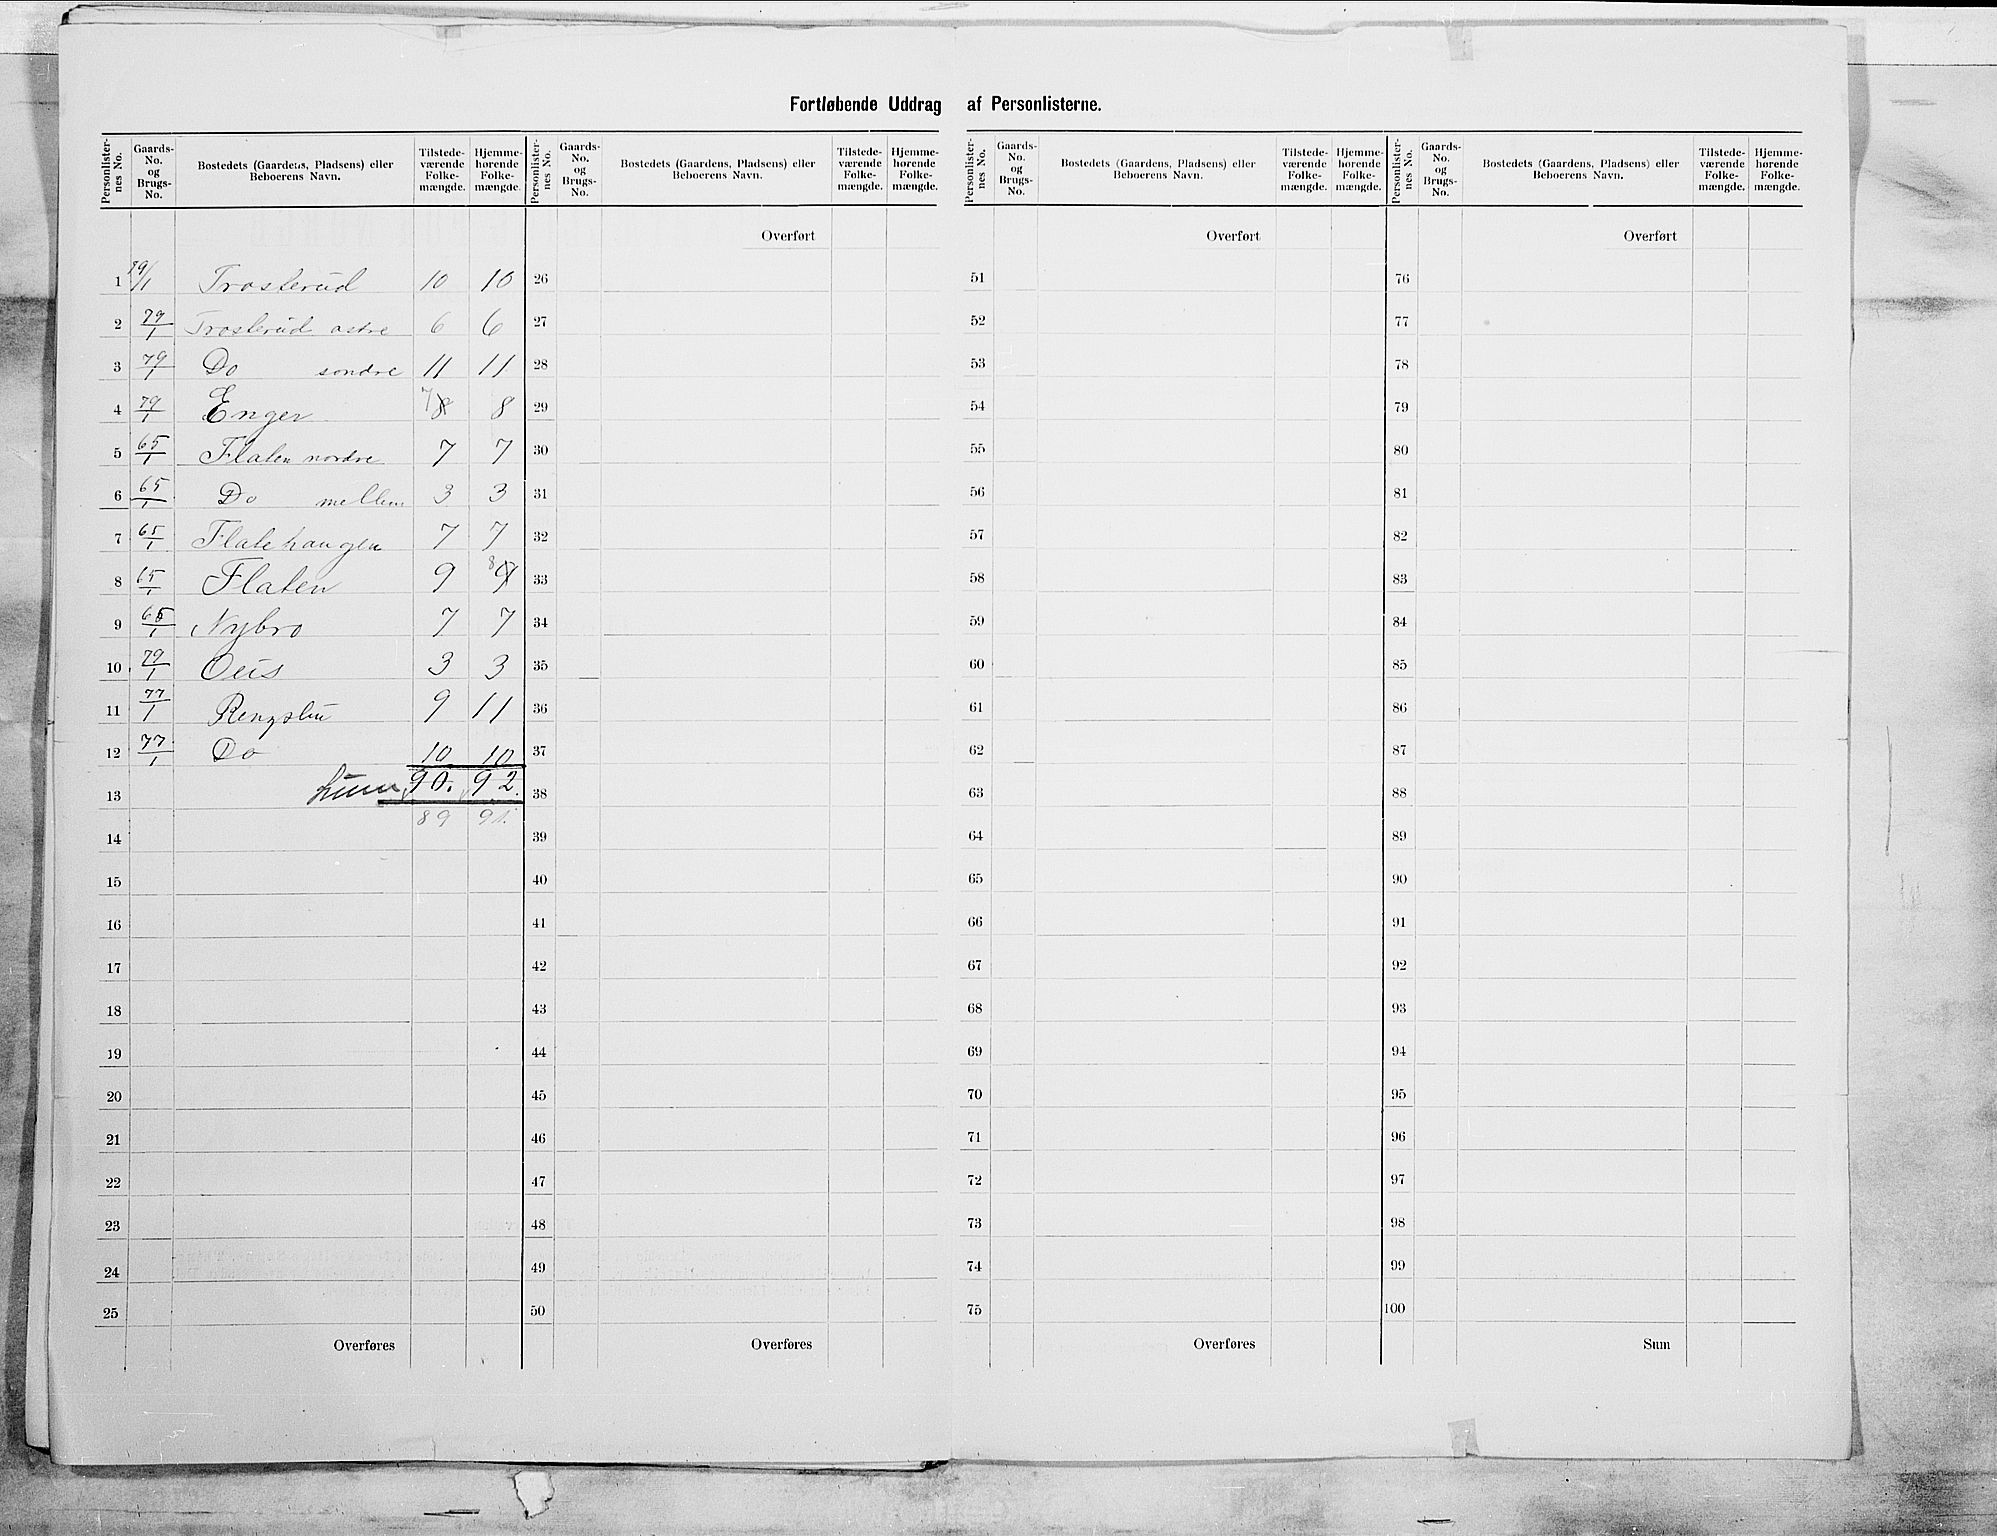 Fortløbende Uddrag af Personlisterne.
Personlister-nes No. Gaards-No. og Brugs-No. Bostedets (Gaardens, Pladsens) eller Beboerens Navn. Tilstede-værende Folke-mængde. Hjemme-hørende Folke-mængde.
1 79/1 Trosterud 10 10
2 79/1 Trosterud østre 6 6
3 79/1 Do søndre 11 11
4 79/1 Enger 7 8 8
5 65/1 Flaten nordre 7 7
6 65/1 Do mellem 3 3
7 65/1 Flatehaugen 7 7
8 65/1 Flaten 9 8 9
9 65/1 Nybro 7 7
10 79/1 3 3
11 77/1 9 11
12 77/1 Do 10 10
13 Sum 90. 92.
89 91.
14
15
16
17
18
19
20
21
22
23
24
25
Overføres
Personlister-nes No. Gaards-No. og Brugs-No. Bostedets (Gaardens, Pladsens) eller Beboerens Navn. Tilstede-værende Folke-mængde. Hjemme-hørende Folke-mængde.
Overført
26
27
28
29
30
31
32
33
34
35
36
37
38
39
40
41
42
43
44
45
46
47
48
49
50
Overføres
Personlister-nes No. Gaards-No. og Brugs-No. Bostedets (Gaardens, Pladsens) eller Beboerens Navn. Tilstede-værende Folke-mængde. Hjemme-hørende Folke-mængde.
Overført
51
52
53
54
55
56
57
58
59
60
61
62
63
64
65
66
67
68
69
70
71
72
73
74
75
Overføres
Personlister-nes No. Gaards-No. og Brugs-No. Bostedets (Gaardens, Pladsens) eller Beboerens Navn. Tilstede-værende Folke-mængde. Hjemme-hørende Folke-mængde.
Overført
76
77
78
79
80
81
82
83
84
85
86
87
88
89
90
91
92
93
94
95
96
97
98
99
100
Sum